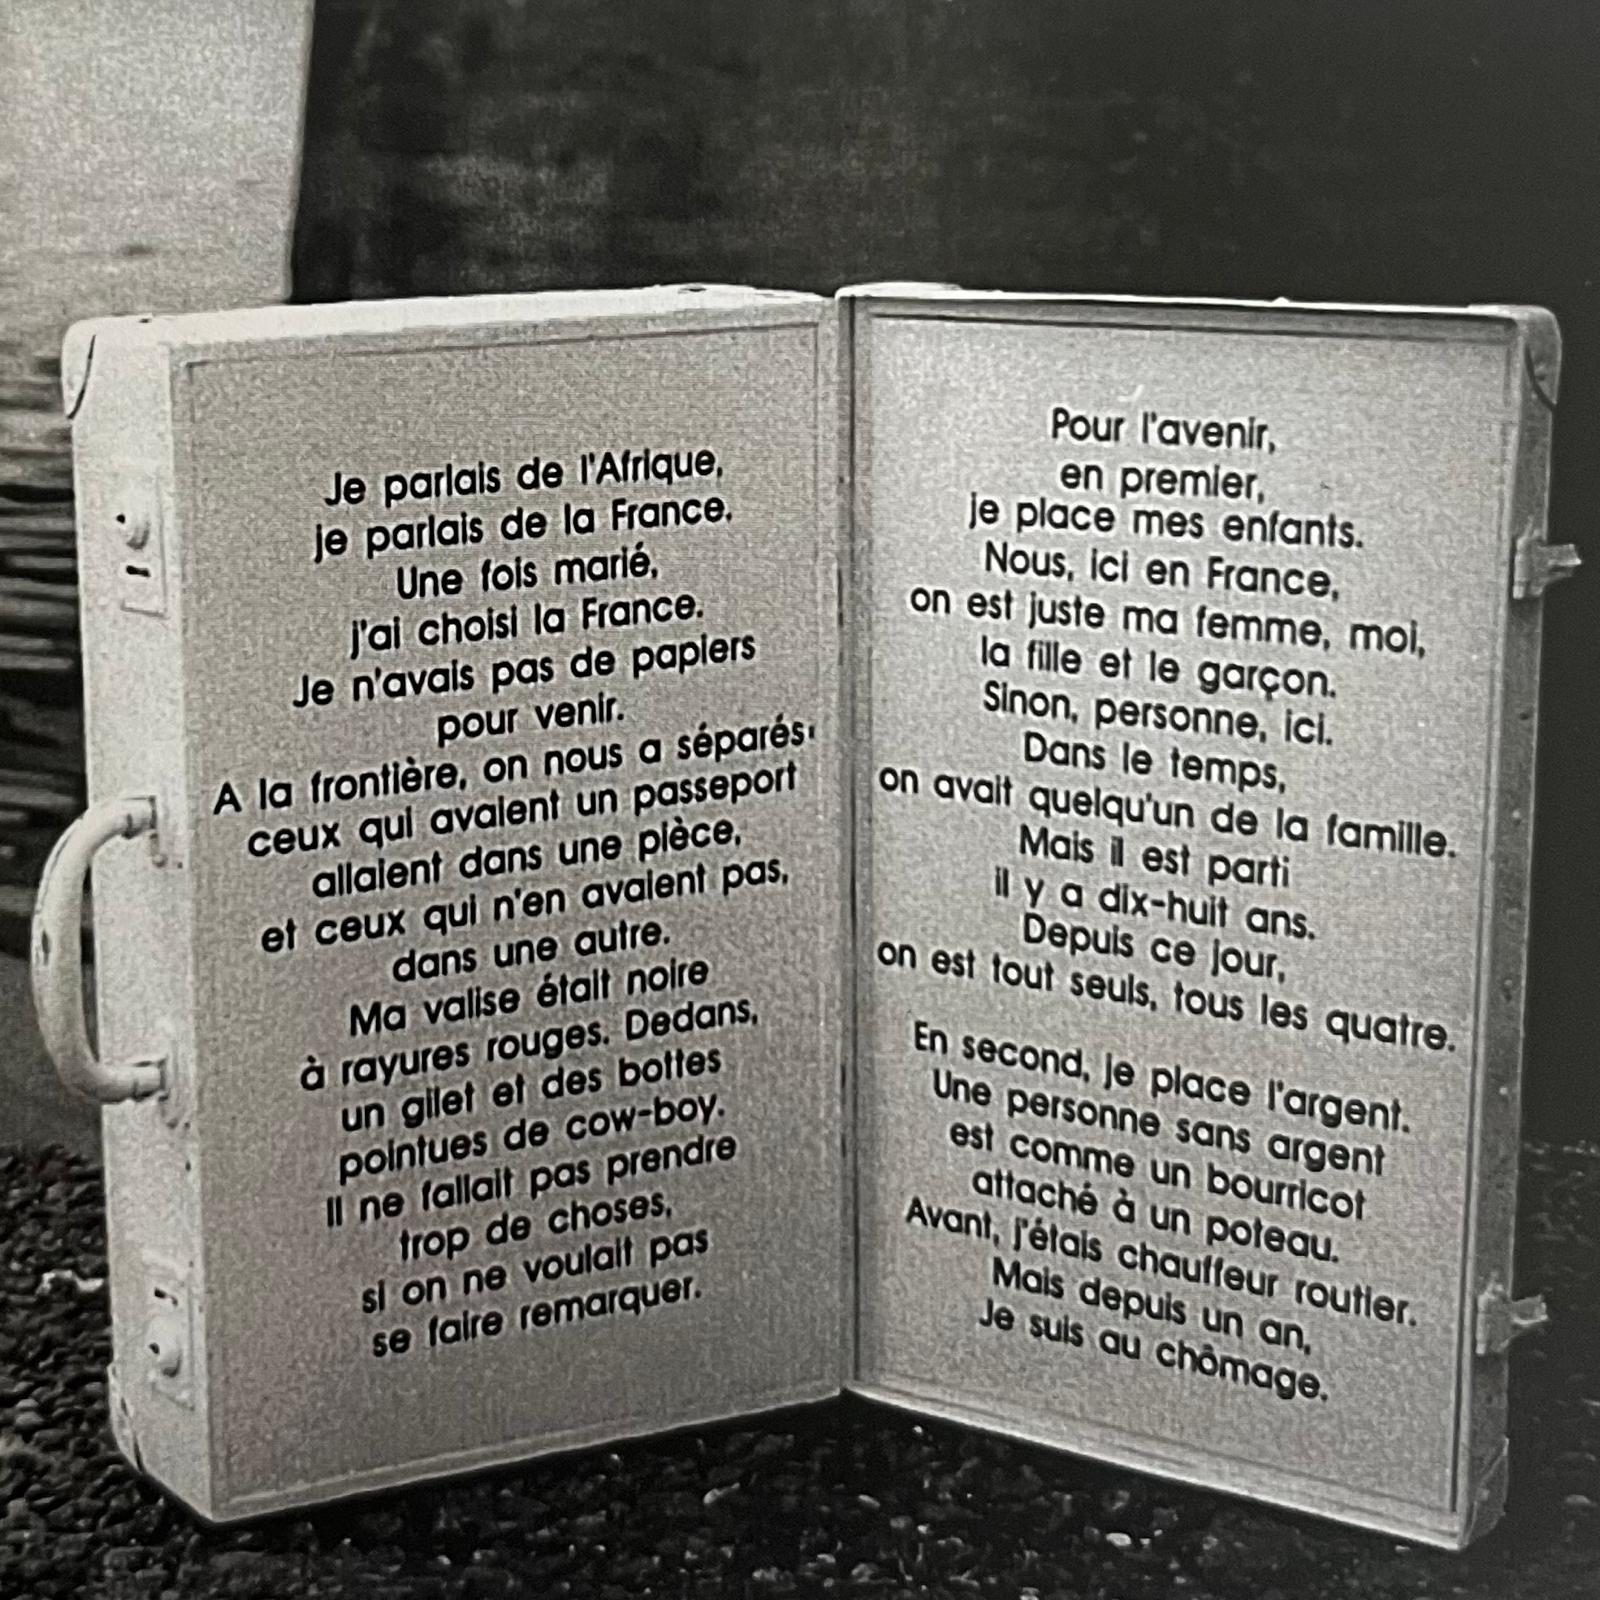 Je parlais de l'Afrique,
je parlais de la France.
Une fois marié,
j'ai choisi la France.
Je n'avais pas de papiers
pour venir.
A la frontière, on nous a séparés:
ceux qui avaient un passeport
allaient dans une pièce,
et ceux qui n'en avaient pas,
dans une autre.
Ma valise était noire
à rayures rouges. Dedans,
un gilet et des bottes
pointues de cow-boy.
Il ne fallait pas prendre
trop de choses,
si on ne voulait pas
se faire remarquer.
Pour l'avenir,
en premier,
je place mes enfants.
Nous, ici en France,
on est juste ma femme, moi,
la fille et le garçon.
Sinon, personne, ici.
Dans le temps,
on avait quelqu'un de la famille.
Mais il est parti
il y a dix-huit ans.
Depuis ce jour,
on est tout seuls, tous les quatre.
En second, je place l'argent.
Une personne sans argent
est comme un bourricot
attaché à un poteau.
Avant, j'étais chauffeur routier.
Mais depuis un an,
Je suis au chômage.